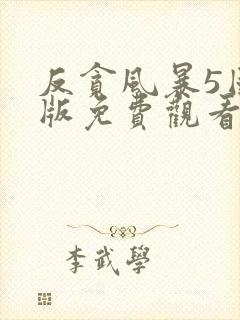 反貪風暴5
版免費觀看
李武學